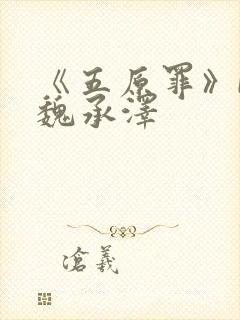 《五原罪》
魏承泽
沧羲